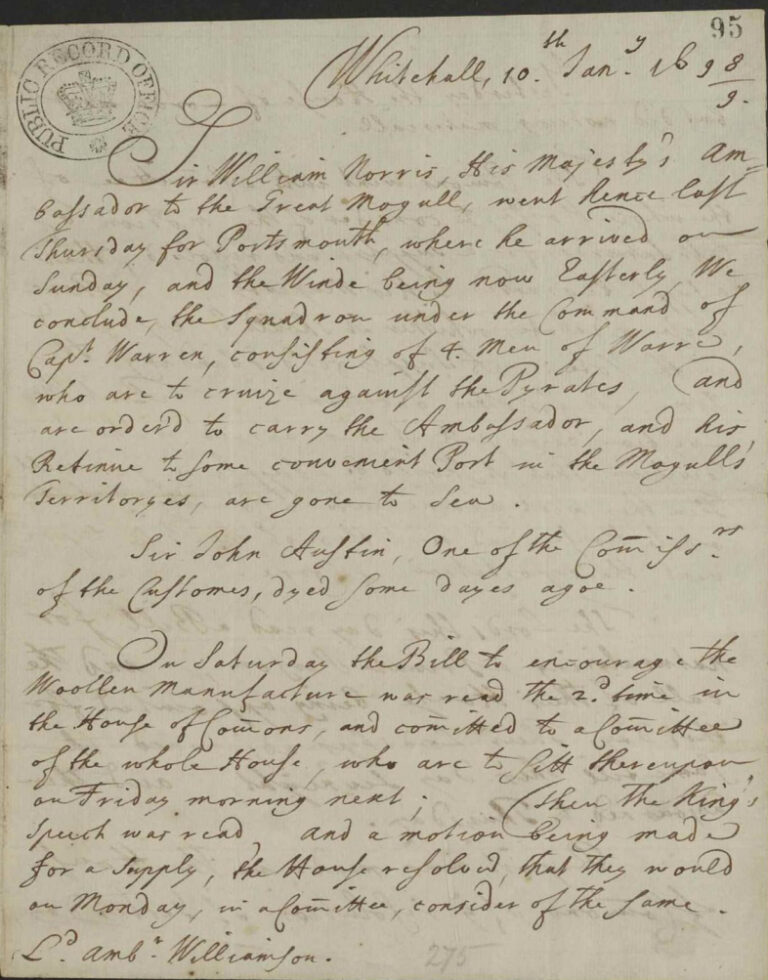 95
PUBLIC RECORD OFFICE
Whitehall, 10.th Jan.y 1698/9.
Sir William Norris, His Majesty's Am-
bassador to the Great Mogull, went hence last
Thursday for Portsmouth, where he arrived on
Sunday, and the Winde being now Easterly, We
conclude, the Squadron under the Command of
Capt. Warren, consisting of 4. Men of Warre,
who are to cruize against the Pyrates, and
are order'd to carry the Ambassador, and his
Retinue to some convenient Port in the Mogull's
Territoryes, are gone to Sea.
Sir John Austin, One of the Com̄iss.rs
of the Customes, dyed some dayes agoe.
On Saturday the Bill to encourage the
Woollen Manufacture was read the 2.d time in
the House of Com̄ons, and com̄itted to a Com̄ittee
of the whole House, who are to sitt thereupon
on Friday morning next; Then the King's
Speech was read, and a motion being made
for a Supply, the House resolved, that they would
on Monday, in a Com̄ittee, consider of the same.
L.d Amb.r Williamson.
275